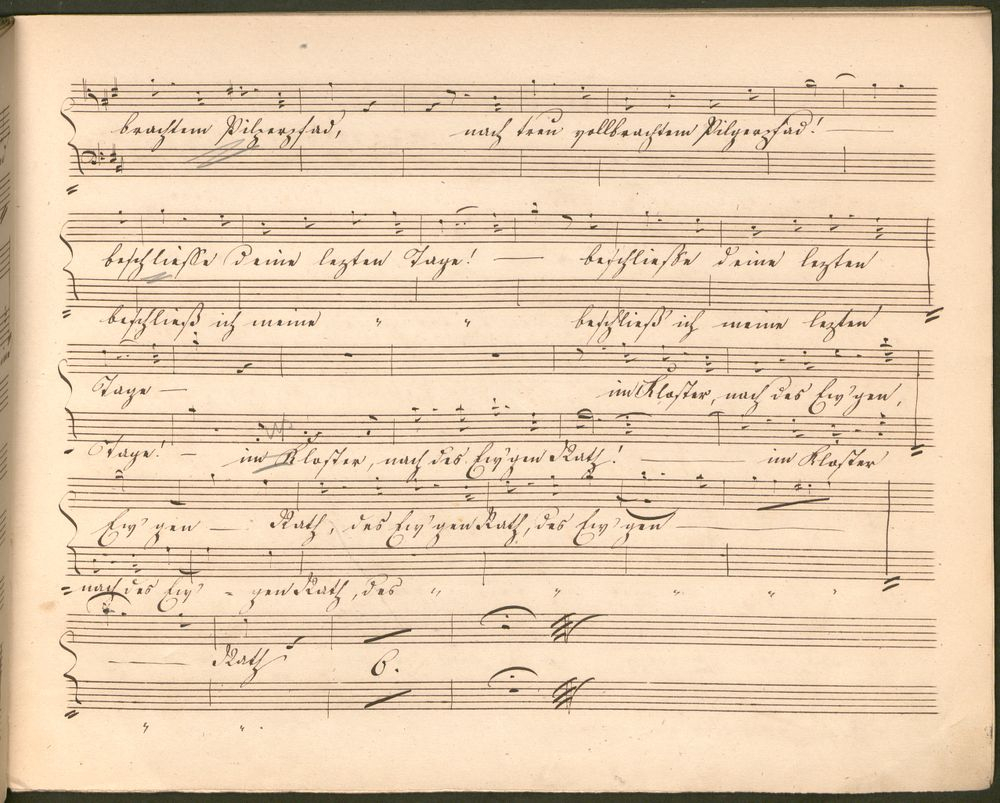 brachtem Pilgerpfad, nach treu vollbrachtem Pilgerpfad! —
beschliesse Deine lezten Tage! — beschliesse deine lezten
beschließ ich meine " " beschließ ich meine lezten
Tage — im Kloster, nach des Ew'gen,
Tage! — im Kloster, nach des Ew'gen Rath! — im Kloster
Ew'gen — Rath, des Ew'gen Rath, des Ew'gen —
nach des Ew' = gen Rath, des " " " " "
— Rath 6.
" " .